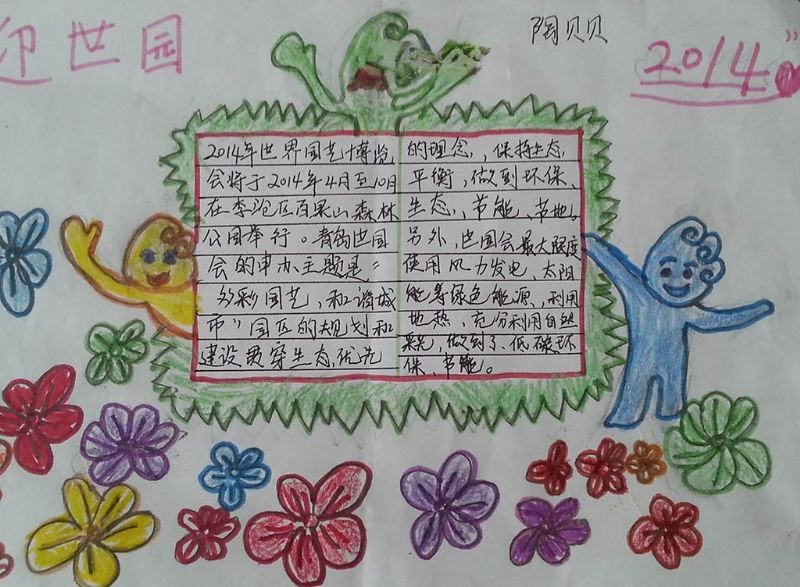 迎世园
陶贝贝
2014
2014年世界园艺博览
会将于2014年4月至10月
在李沧区百果山森林
公园举行。青岛世园
会的申办主题是“
多彩园艺，和谐城
市”园区的规划和
建设贯穿生态优先
的理念，保持生态
平衡，做到环保、
生态、节能、节地。
另外，世园会最大限度
使用风力发电、太阳
能等绿色能源、利用
地热，充分利用自然
采光，做到了低碳环
保、节能。